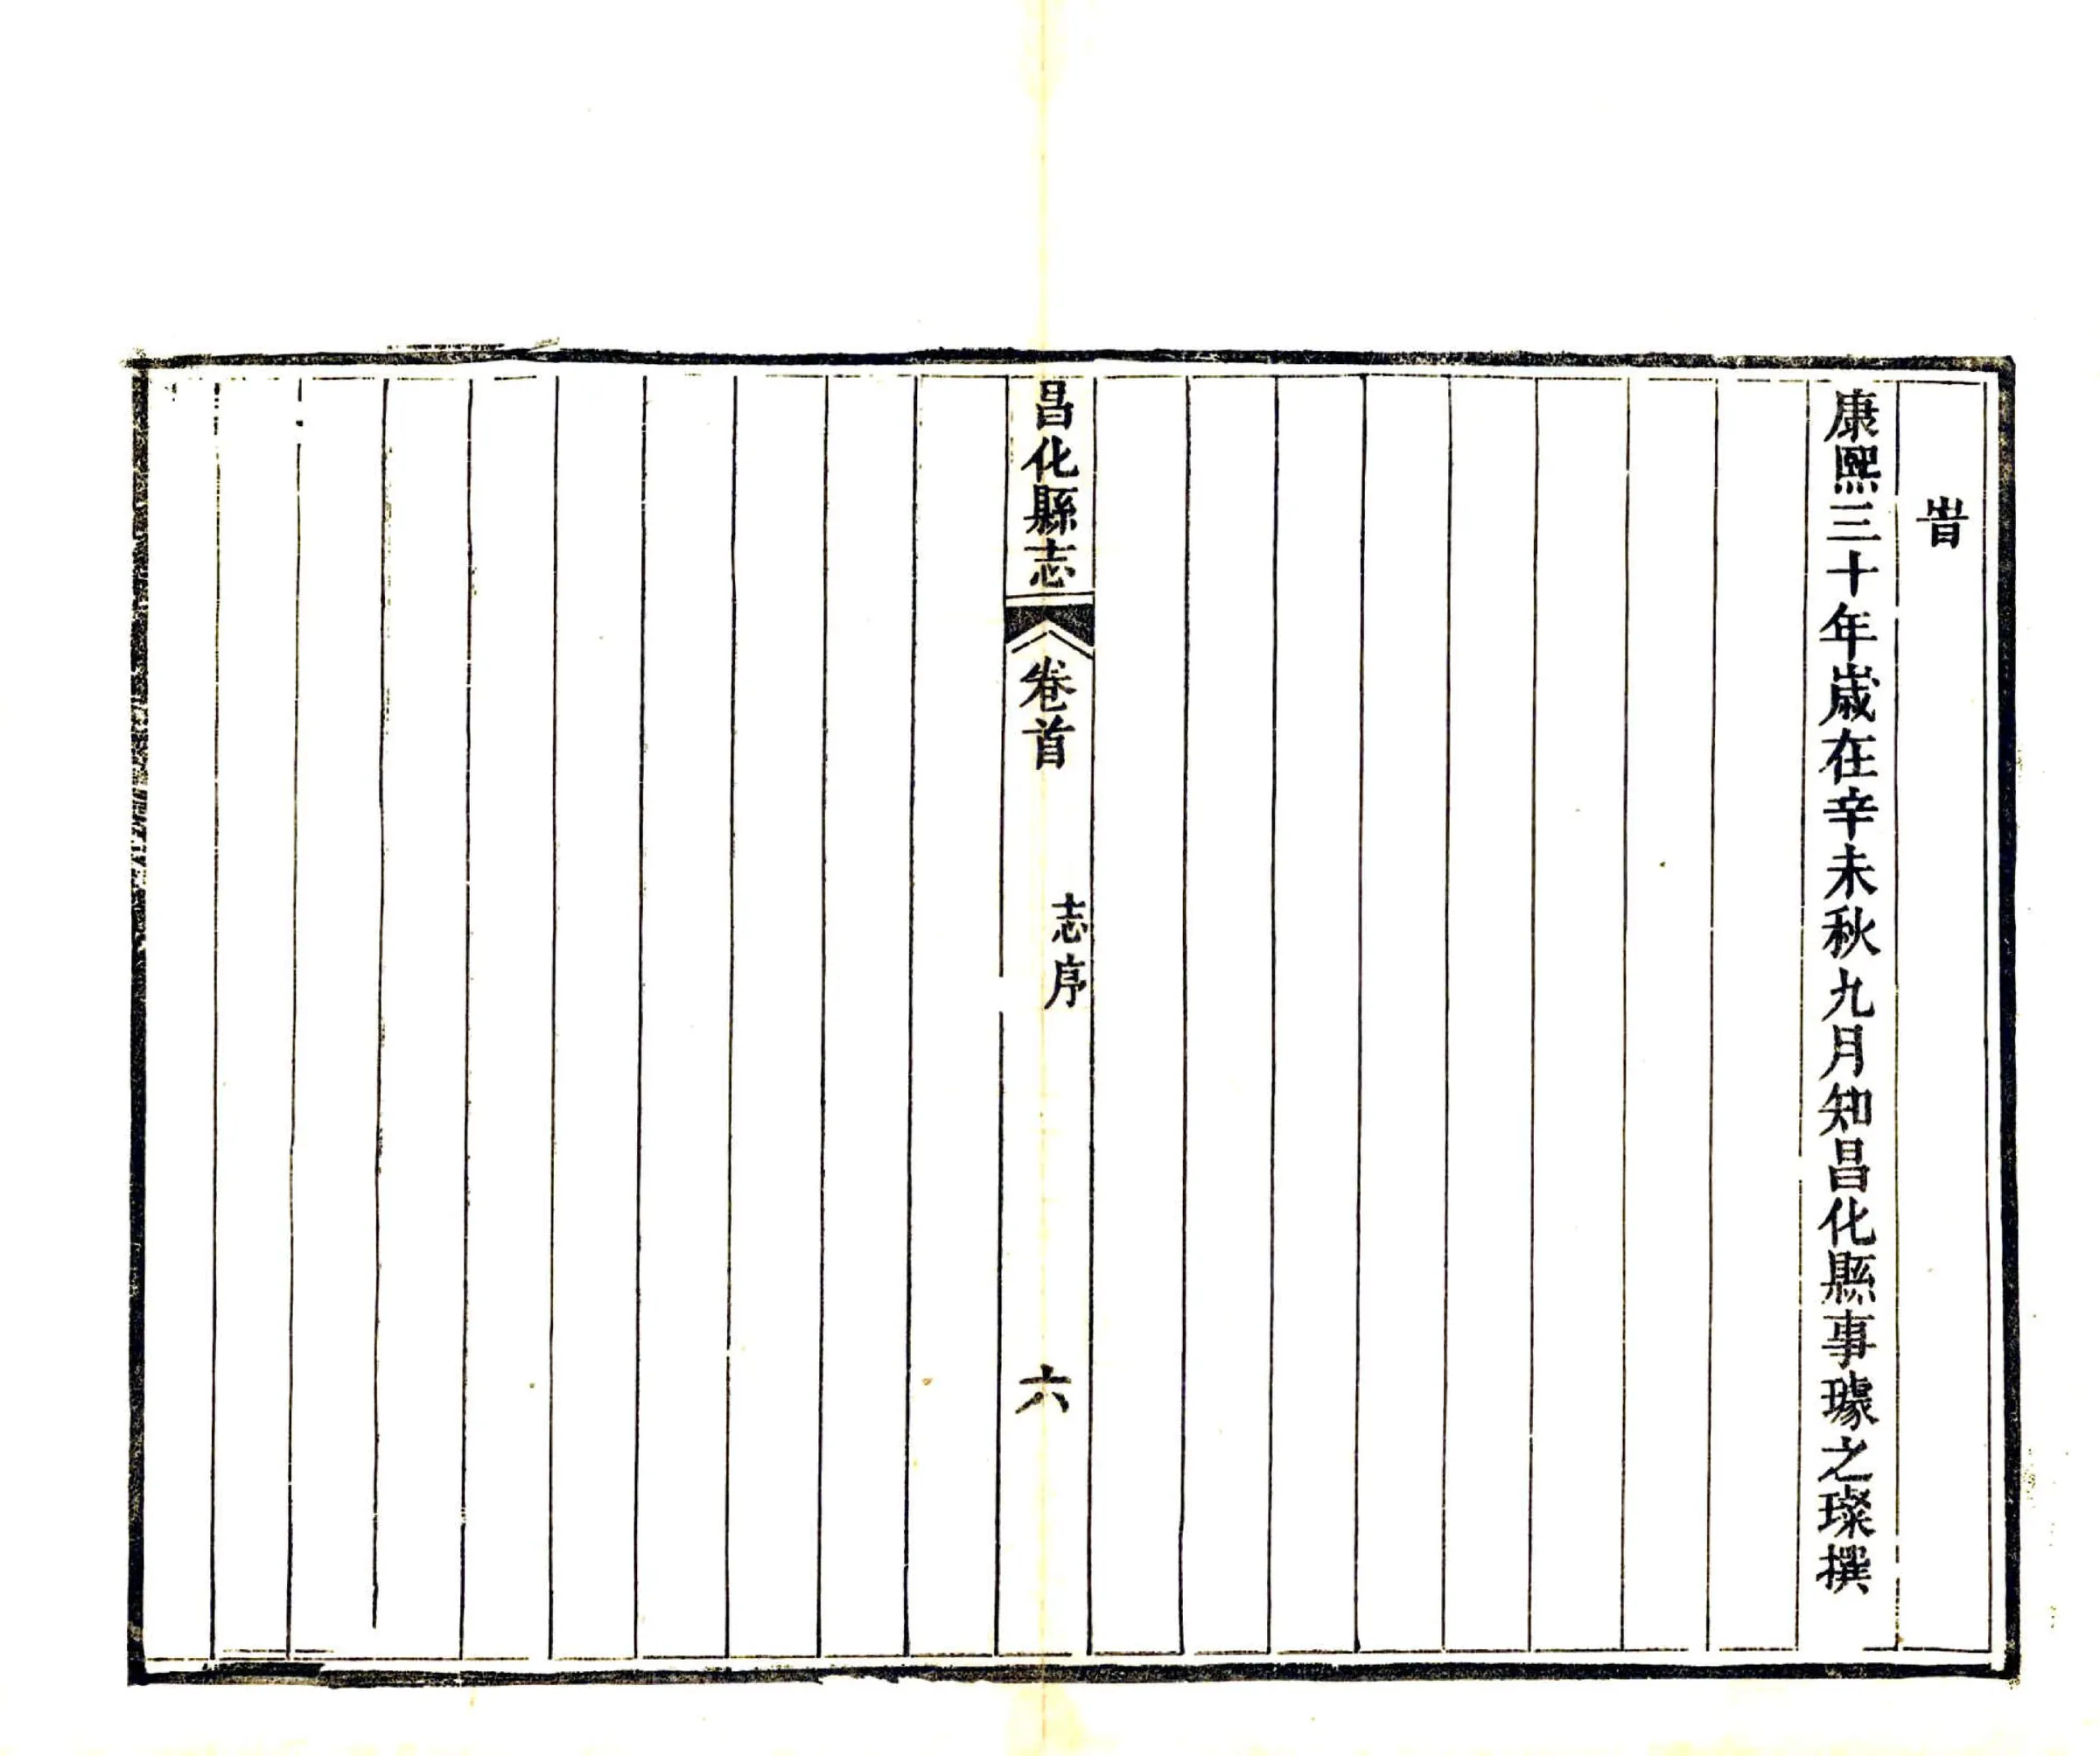 旹
康熙三十年歲在辛未秋九月知昌化縣事璩之璨撰
昌化縣志 卷首 志序 六